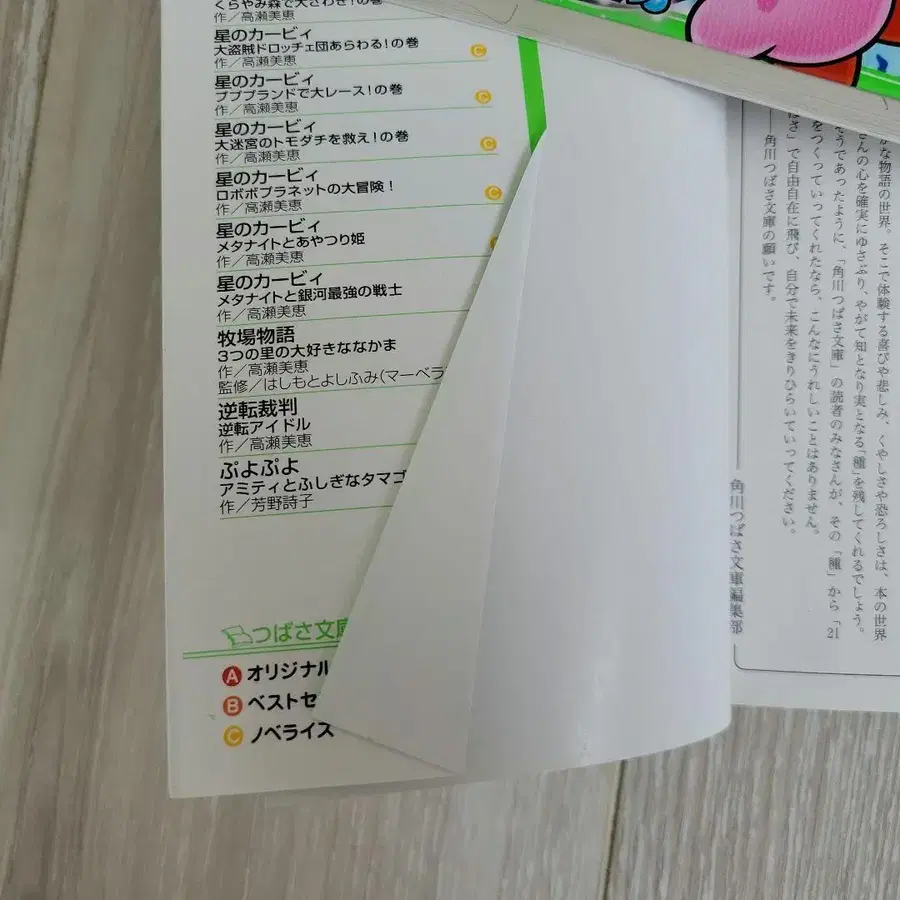 くらやみ森で大さわぎ!の巻
作/高瀬美恵
星のカービィ
大盗賊ドロッチェ団あらわる!の巻
作/高瀬美恵
C
星のカービィ
プププランドで大レース!の巻
作/高瀬美恵
C
星のカービィ
大迷宮のトモダチを救え!の巻
作/高瀬美恵
C
星のカービィ
ロボボプラネットの大冒険!
作/高瀬美恵
C
星のカービィ
メタナイトとあやつり姫
作/高瀬美恵
星のカービィ
メタナイトと銀河最強の戦士
作/高瀬美恵
牧場物語
3つの里の大好きななかま
作/高瀬美恵
監修/はしもとよしふみ(マーベラ
逆転裁判
逆転アイドル
作/高瀬美恵
ぷよぷよ
アミティとふしぎなタマゴ
作/芳野詩子
つばさ文庫
A オリジナル
B ベストセ
C ノベライズ
かな物語の世界。そこで体験する喜びや悲しみ、くやしさや恐ろしさは、本の世界
さんの心を確実にゆさぶり、やがて知となり実となる「種」を残してくれるでしょう。
そうであったように、「角川つばさ文庫」の読者のみなさんが、その「種」から「21
をつくっていってくれたなら、こんなにうれしいことはありません。
ばさ」で自由自在に飛び、自分で未来をきりひらいていってください。
―角川つばさ文庫の願いです。
角川つばさ文庫編集部